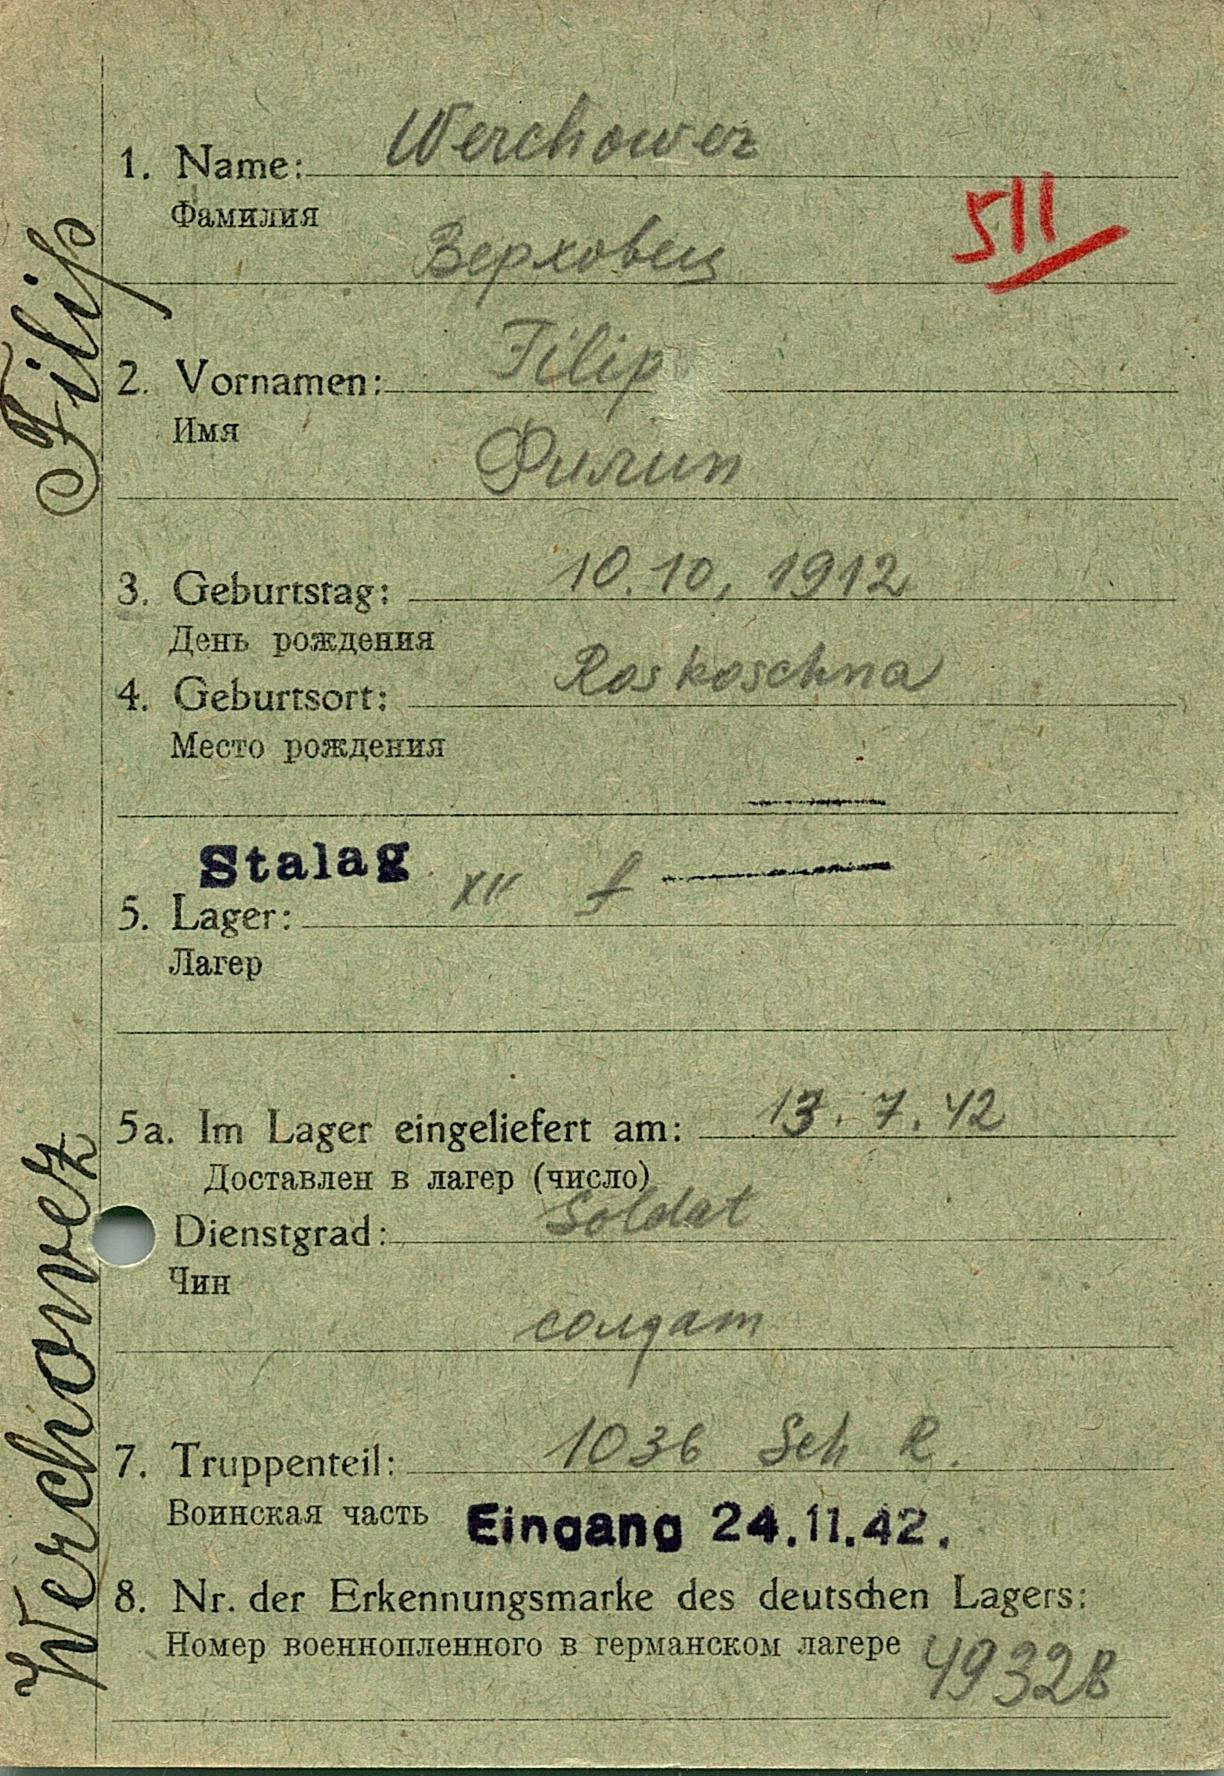 1. Name: Werchowez
Фамилия
511
Верховец
2. Vornamen: Filip
Имя
Филип
3. Geburtstag: 10.10, 1912
День рождения
4. Geburtsort: Roskoschna
Место рождения
Stalag XII f
5. Lager:
Лагер
5a. Im Lager eingeliefert am: 13.7.42
Доставлен в лагер (число)
Dienstgrad: Soldat
Чин
солдат
7. Truppenteil: 1036 Sch R.
Воинская часть Eingang 24.11.42.
8. Nr. der Erkennungsmarke des deutschen Lagers:
Номер военнопленного в германском лагере 49328
Werchovez Filip